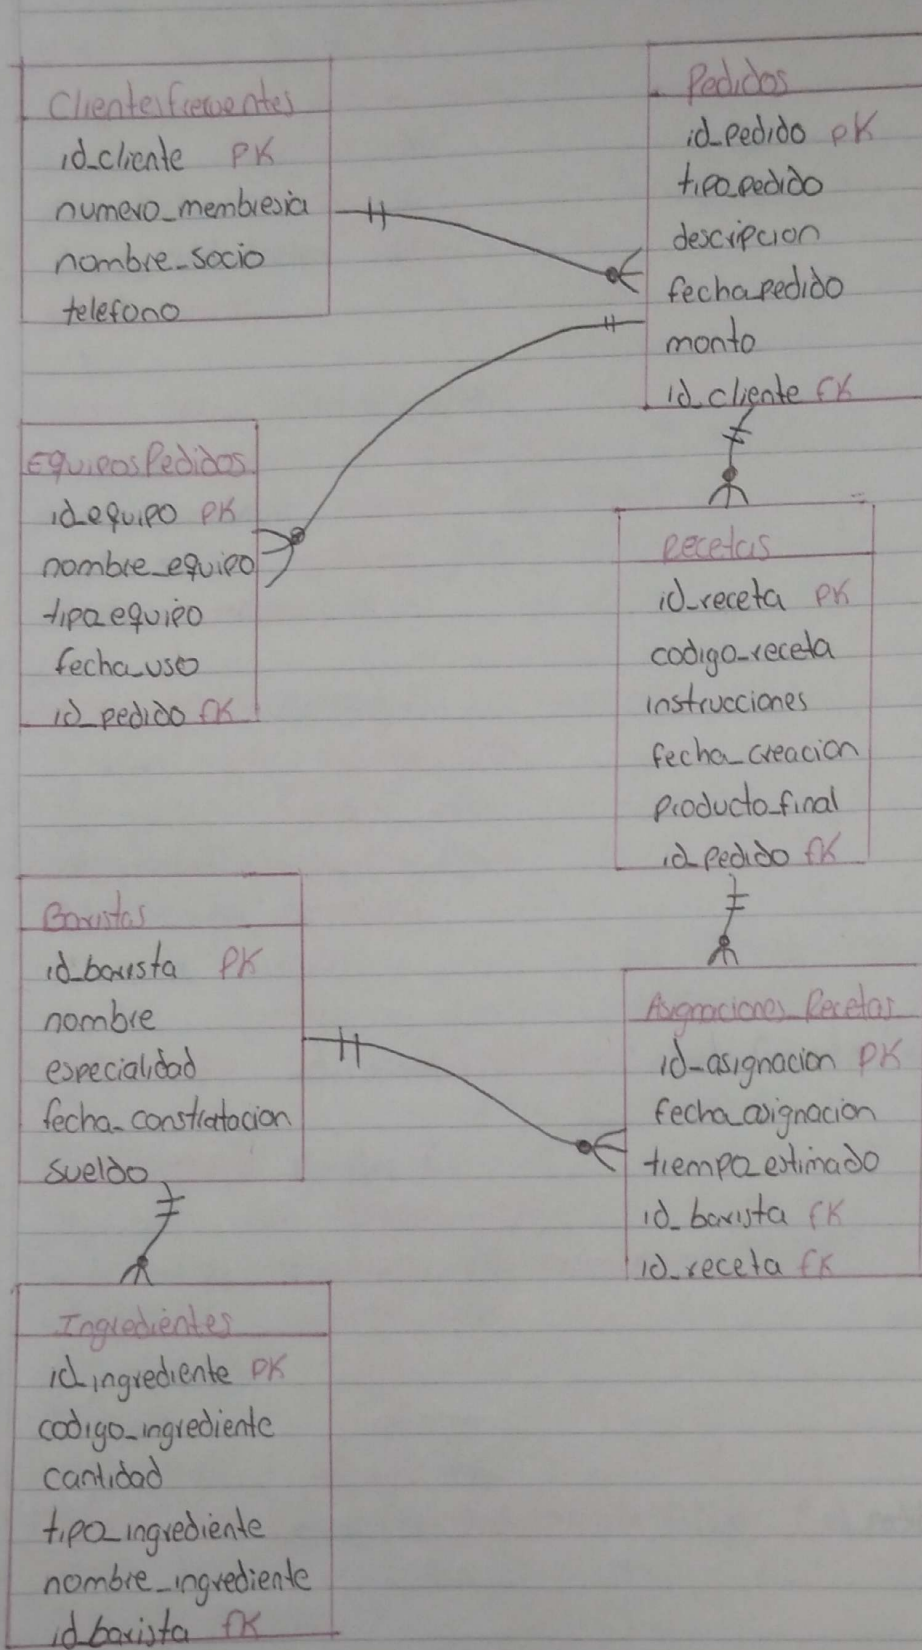 Clientesfrecuentes
id_cliente PK
numero_membresia
nombre_socio
telefono
Pedidos
id_pedido PK
tipo_pedido
descripcion
fecha_pedido
monto
id_cliente FK
EquiposPedidos
id_equipo PK
nombre_equipo
tipo_equipo
fecha_uso
id_pedido fK
Recetas
id_receta PK
codigo_receta
instrucciones
fecha_creacion
producto_final
id_pedido fK
Baristas
id_barista PK
nombre
especialidad
fecha_constratacion
sueldo
Asignaciones_Recetas
id_asignacion PK
fecha_asignacion
tiempo_estimado
id_barista fK
id_receta fK
Ingredientes
id_ingrediente PK
codigo_ingrediente
cantidad
tipo_ingrediente
nombre_ingrediente
id_barista fK